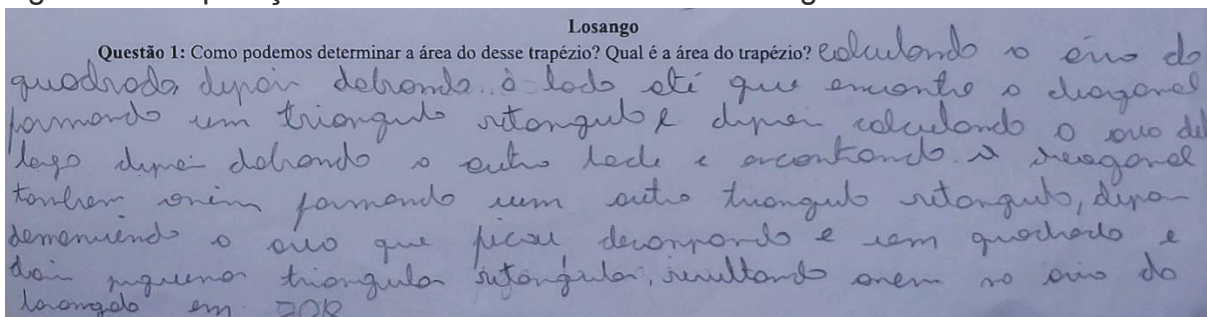 Losango
Questão 1: Como podemos determinar a área do desse trapézio? Qual é a área do trapézio? calculando a área do
quadrado, depois dobrando o lado até que encontre a diagonal
formando um triangulo retangulo e depois calculando a area del
lago depois dobrando o outro lado e encontrando a diagonal
tambem assim formando um outro triangulo retangulo, depois
a area que ficou decompondo e um quadrado e
dois pequenos triangulos retangulos, resultando assim na area do
losangolo em